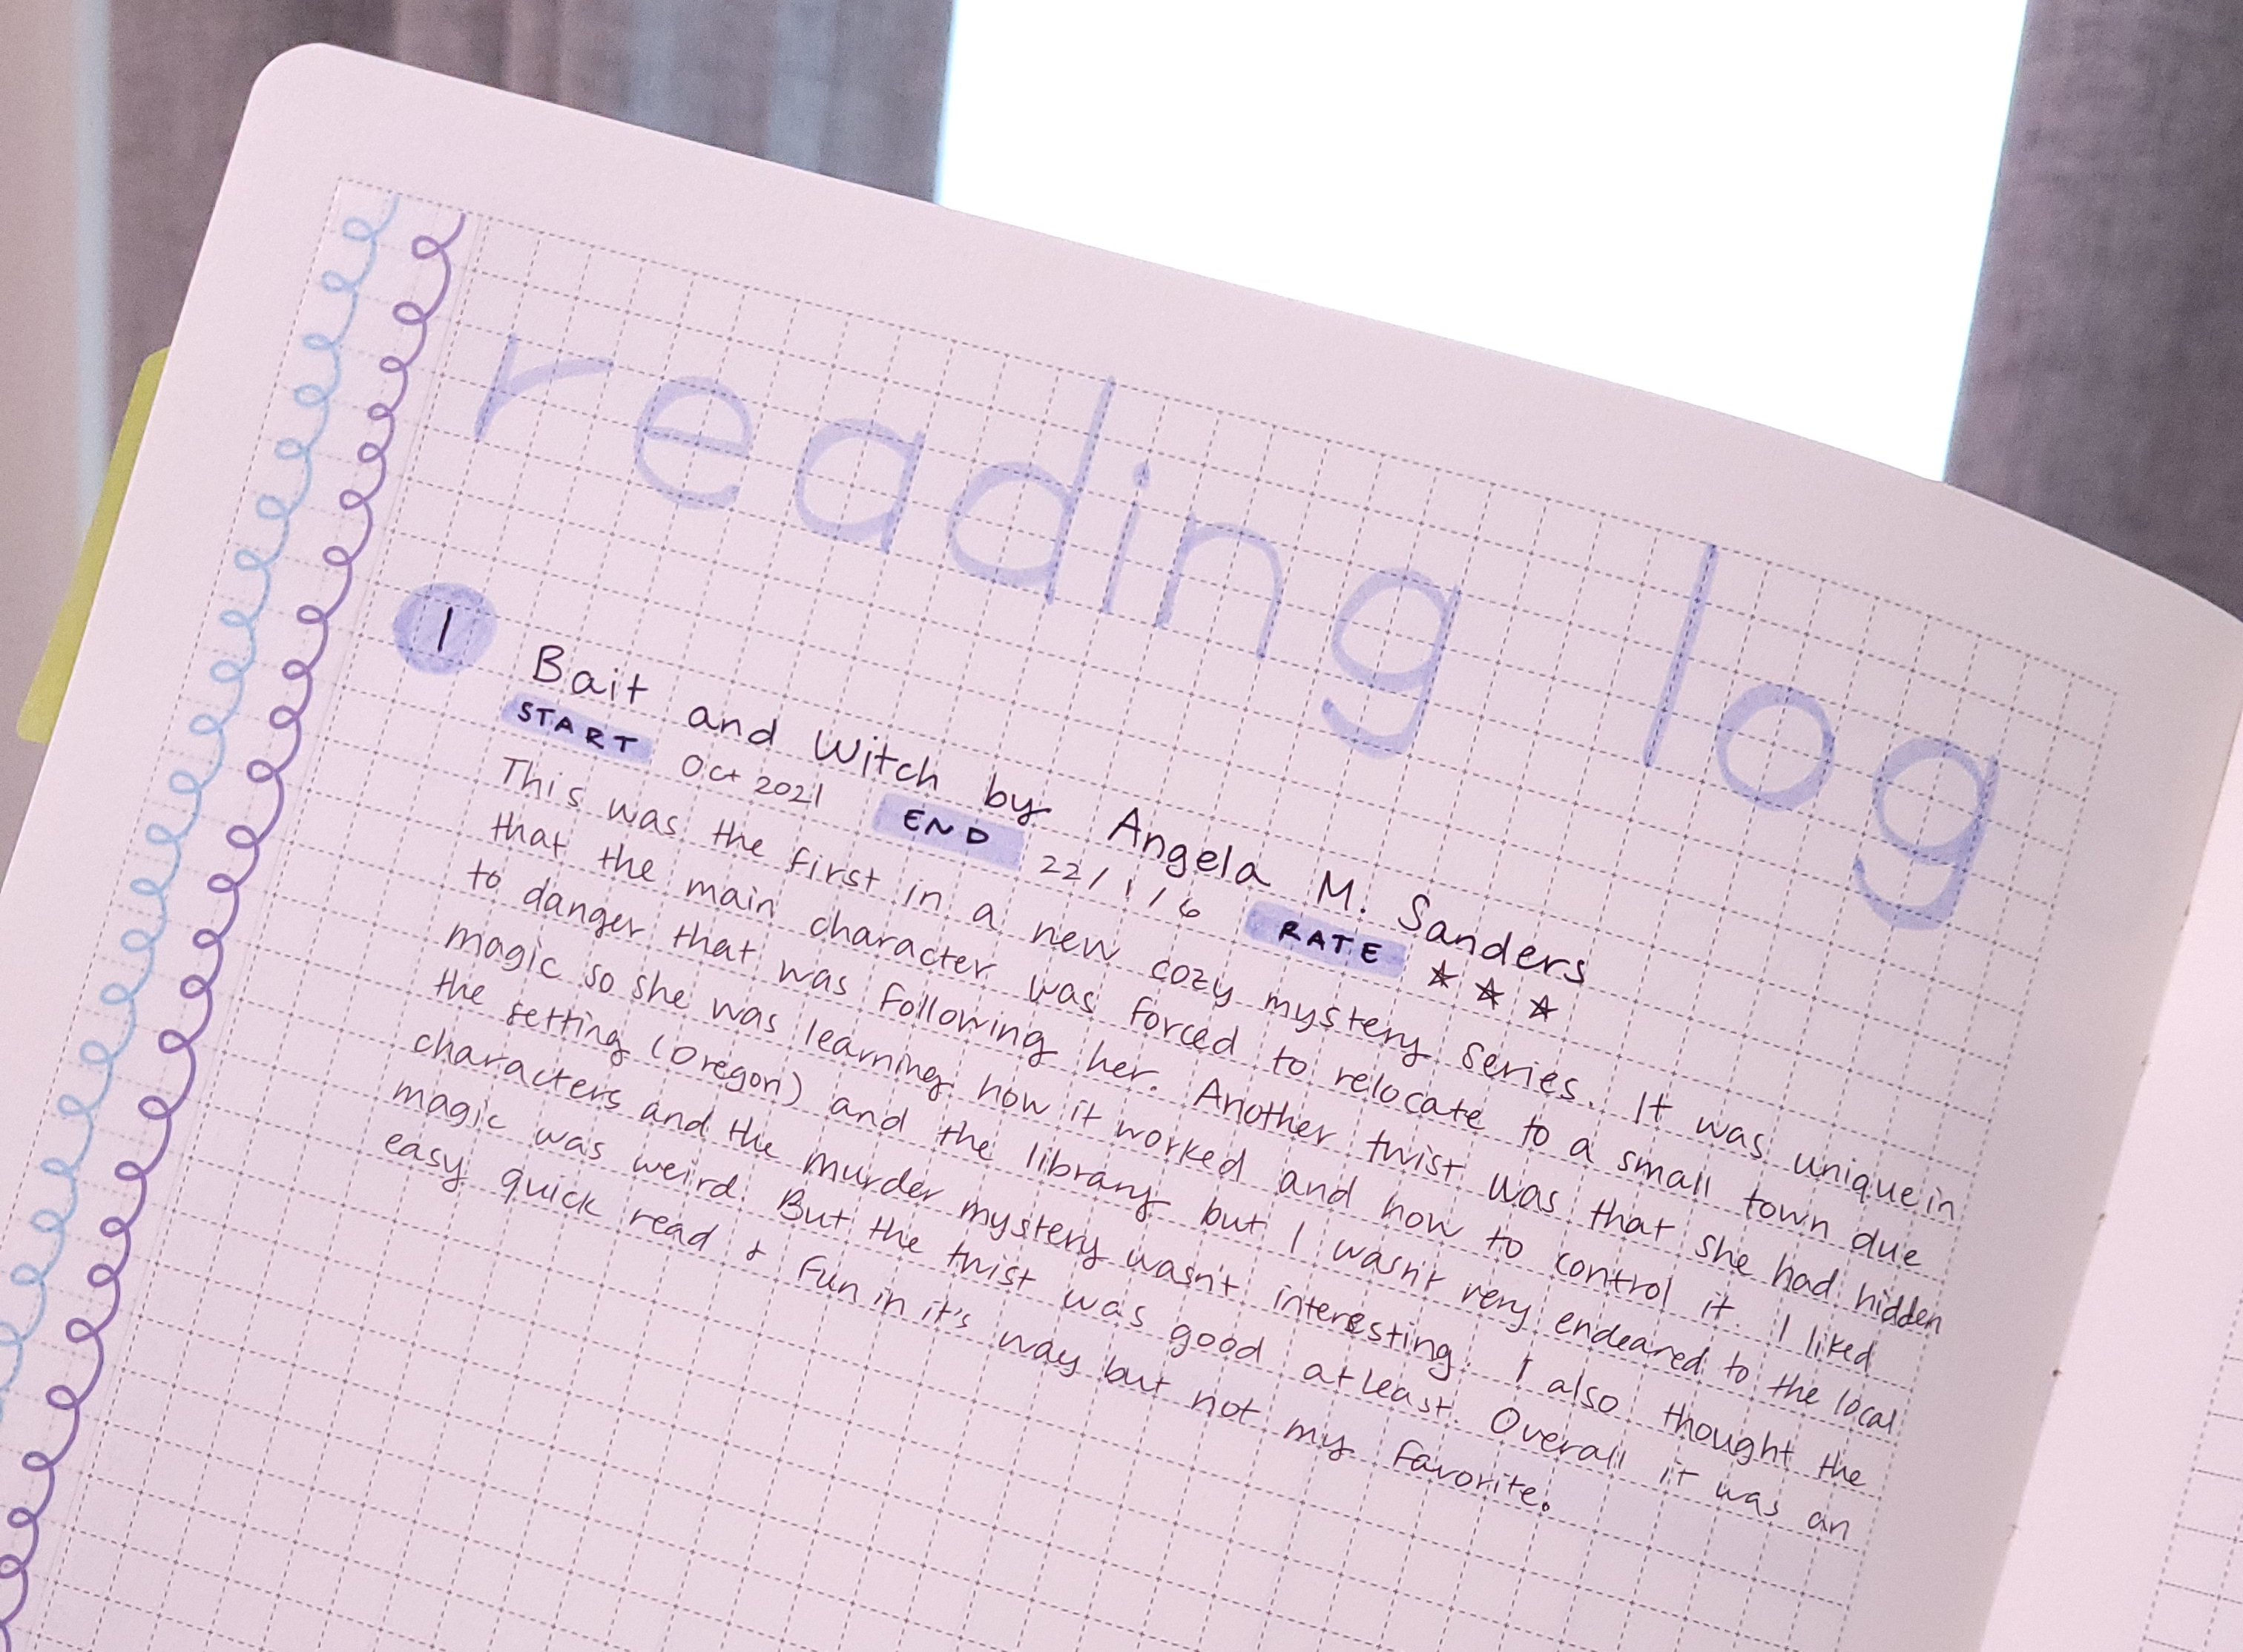 reading log
1 Bait and Witch by Angela M. Sanders
START Oct 2021 END 22/1/6 RATE ★ ★ ★
This was the first in a new cozy mystery series. It was unique in
that the main character was forced to relocate to a small town due
to danger that was following her. Another twist was that she had hidden
magic so she was learning how it worked and how to control it. I liked
the setting (Oregon) and the library but I wasn't very endeared to the local
characters and the murder mystery wasn't interesting. I also thought the
magic was weird. But the twist was good at least. Overall it was an
easy quick read & fun in it's way but not my favorite.